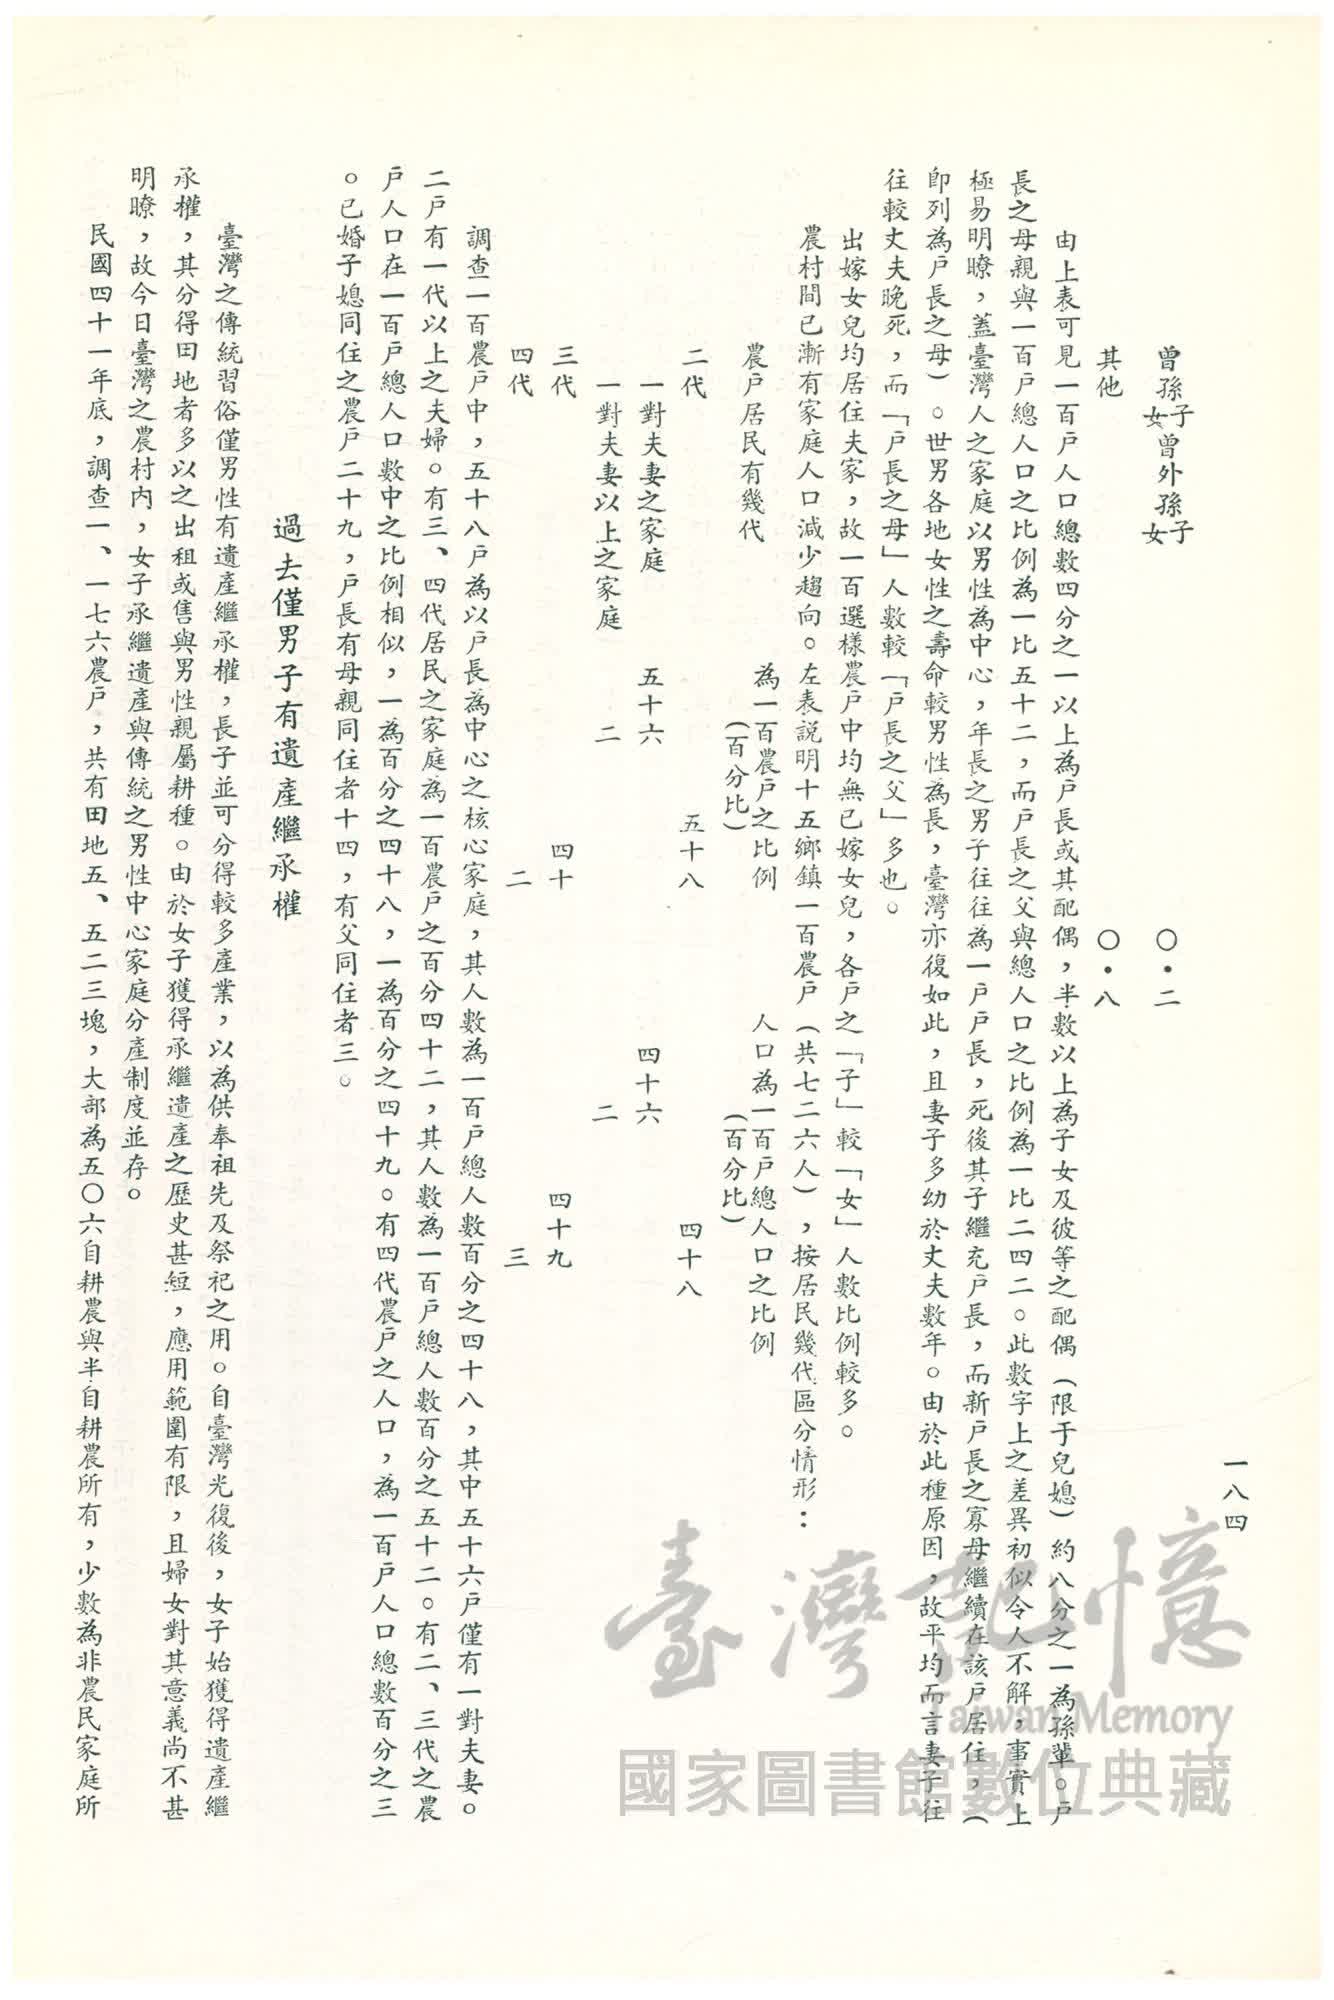 一八四
曾孫子女曾外孫子女　〇・二
其他　〇・八
由上表可見一百戶人口總數四分之一以上為戶長或其配偶，半數以上為子女及彼等之配偶（限于兒媳）約八分之一為孫輩。戶
長之母親與一百戶總人口之比例為一比五十二，而戶長之父與總人口之比例為一比二四二。此數字上之差異初似令人不解，事實上
極易明瞭，蓋臺灣人之家庭以男性為中心，年長之男子往往為一戶戶長，死後其子繼充戶長，而新戶長之寡母繼續在該戶居住，（
即列為戶長之母）。世男各地女性之壽命較男性為長，臺灣亦復如此，且妻子多幼於丈夫數年。由於此種原因，故平均而言妻子往
往較丈夫晚死，而「戶長之母」人數較「戶長之父」多也。
出嫁女兒均居住夫家，故一百選樣農戶中均無已嫁女兒，各戶之「子」較「女」人數比例較多。
農村間已漸有家庭人口減少趨向。左表説明十五鄉鎮一百農戶（共七二六人），按居民幾代區分情形：
農戶居民有幾代　為一百農戶之比例（百分比）　人口為一百戶總人口之比例（百分比）
二代　五十八　四十八
一對夫妻之家庭　五十六　四十六
一對夫妻以上之家庭　二　二
三代　四十　四十九
四代　二　三
調查一百農戶中，五十八戶為以戶長為中心之核心家庭，其人數為一百戶總人數百分之四十八，其中五十六戶僅有一對夫妻。
二戶有一代以上之夫婦。有三、四代居民之家庭為一百農戶之百分四十二，其人數為一百戶總人數百分之五十二。有二、三代之農
戶人口在一百戶總人口數中之比例相似，一為百分之四十八，一為百分之四十九。有四代農戶之人口，為一百戶人口總數百分之三
。已婚子媳同住之農戶二十九，戶長有母親同住者十四，有父同住者三。
過去僅男子有遺產繼承權
臺灣之傳統習俗僅男性有遺產繼承權，長子並可分得較多產業，以為供奉祖先及祭祀之用。自臺灣光復後，女子始獲得遺產繼
承權，其分得田地者多以之出租或售與男性親屬耕種。由於女子獲得承繼遺產之歷史甚短，應用範圍有限，且婦女對其意義尚不甚
明瞭，故今日臺灣之農村內，女子承繼遺產與傳統之男性中心家庭分產制度並存。
民國四十一年底，調查一、一七六農戶，共有田地五、五二三塊，大部為五〇六自耕農與半自耕農所有，少數為非農民家庭所
臺灣記憶
Taiwan Memory
國家圖書館數位典藏